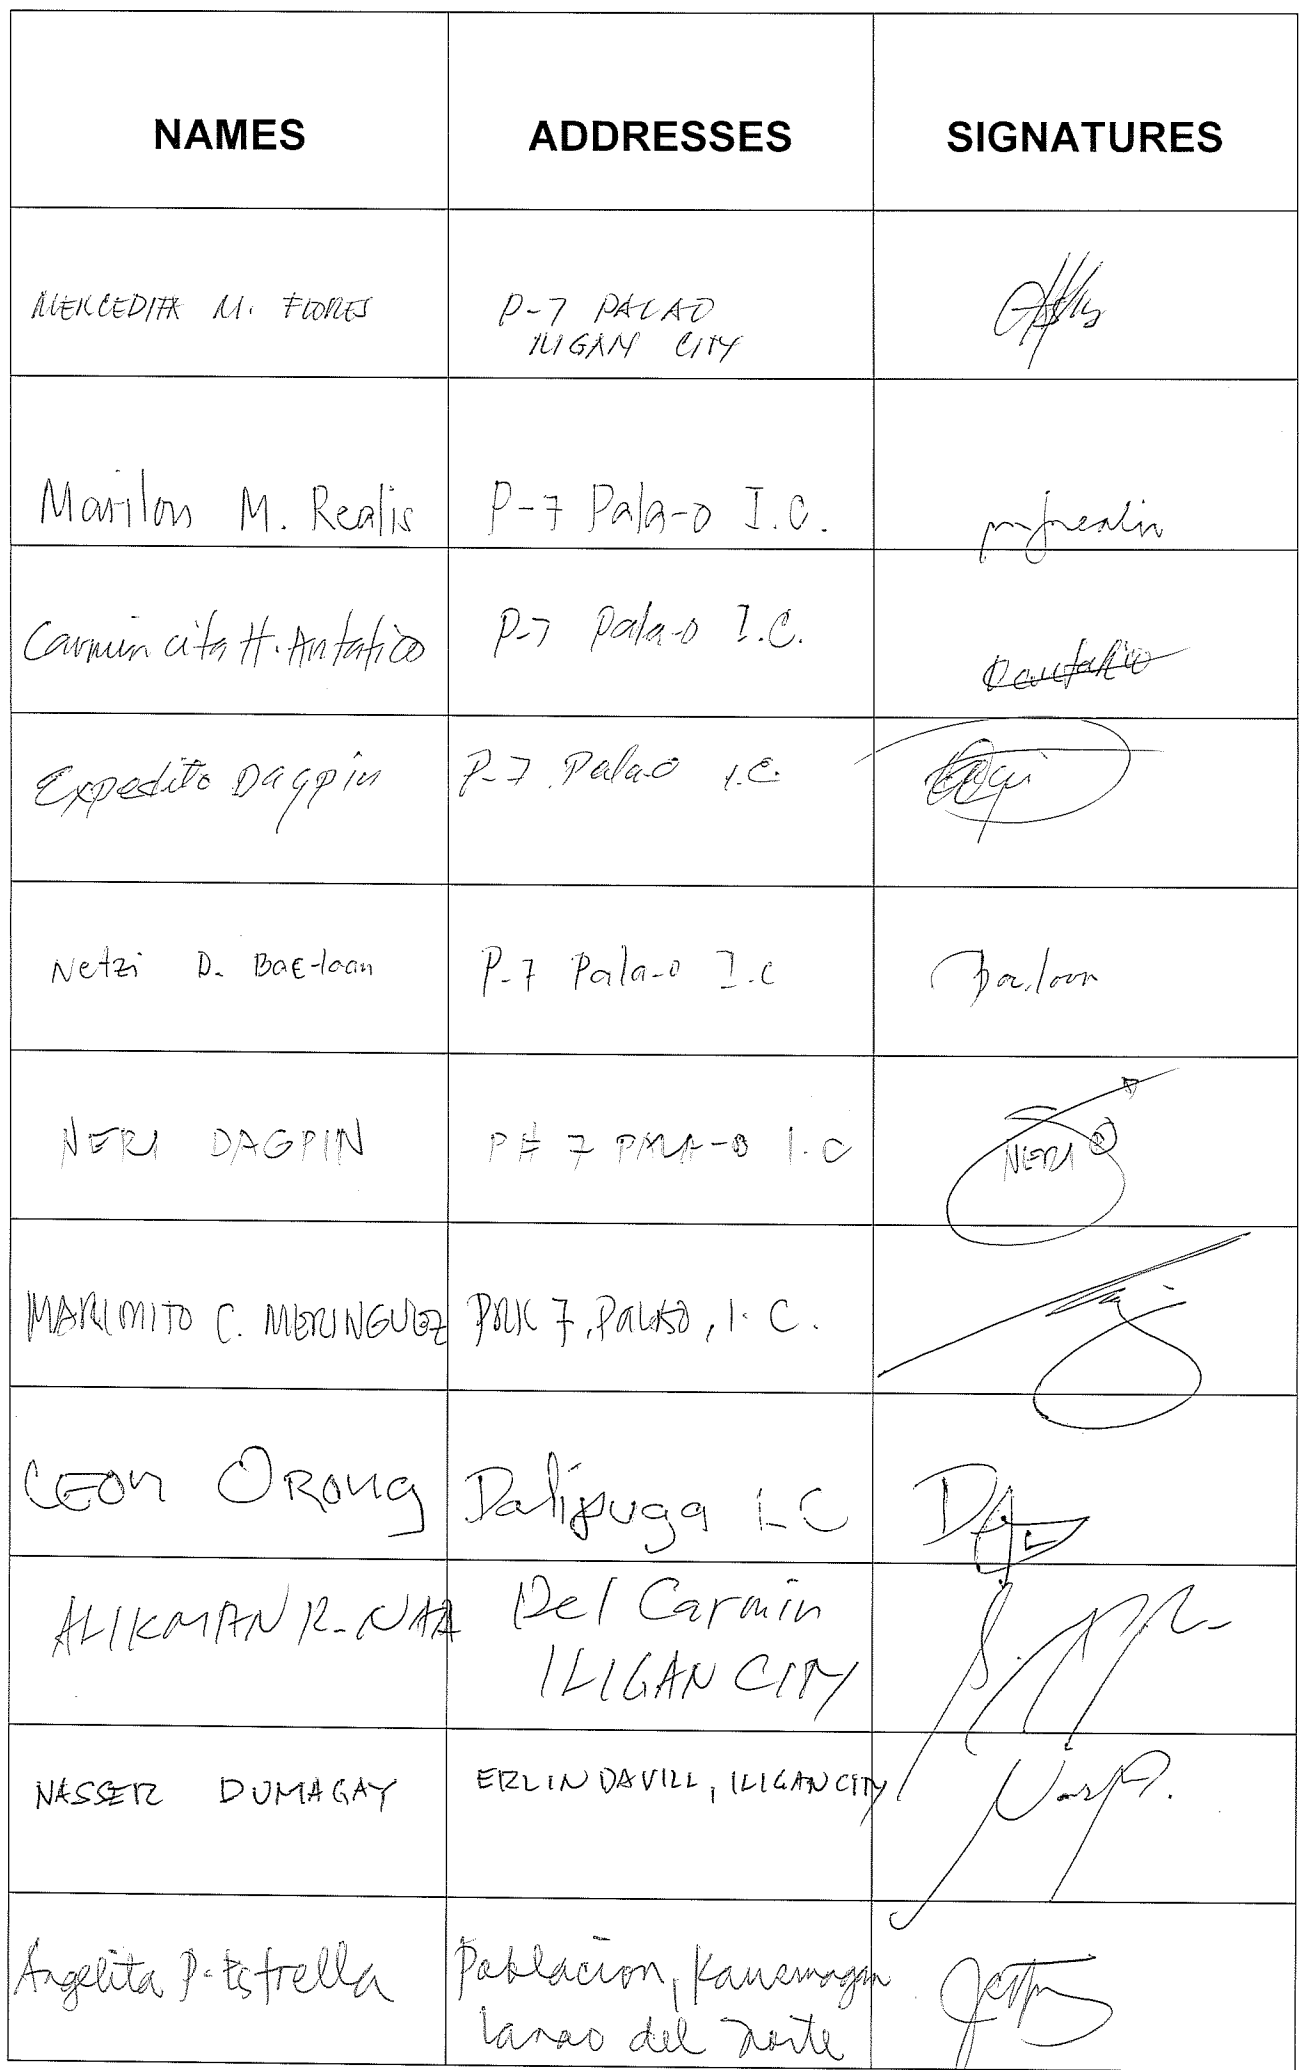 NAMES ADDRESSES SIGNATURES
MERCEDITA M. FLORES P-7 PALAO
ILIGAN CITY
Marilou M. Realis P-7 Pala-o I.C.
Carmincita H. Antatico P-7 Pala-o I.C.
Expedito Dagpin P-7 Pala-o I.C.
Netzi D. Bae-loan P-7 Pala-o I.C
NERI DAGPIN P# 7 PALA-O I.C NERI
MARIMITO C. MERINGUEZ PRK 7, PALAO, I.C.
Orong Dalipuga I.C
ALIKMAN R. NAA Del Carmin
ILIGAN CITY
NASSER DUMAGAY ERLINDAVILL, ILIGAN CITY
Angelita P. Estrella Poblacion, Kauswagan
Lanao del Norte